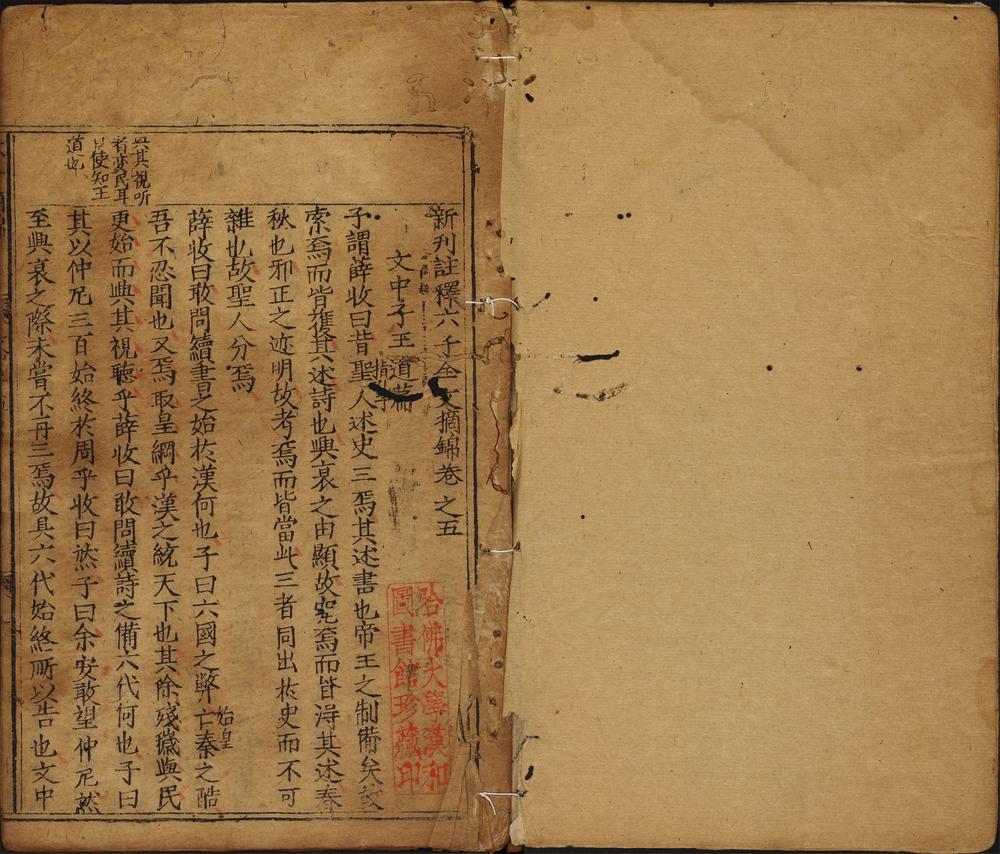 新刊註釋六子全文摘錦卷之五
文中子王道篇
子謂薛收曰昔聖人述史三焉其述書也帝王之制備矣故
索焉而皆獲其述詩也興衰之由顯故究焉而皆淂其述春
秋也邪正之迹明故考焉而皆當此三者同出於史而不可
雜也故聖人分焉
薛收曰敢問續書之始於漢何也子曰六國之弊亡秦之酷
始皇
吾不忍聞也又焉取皇綱乎漢之統天下也其除殘穢與民
更始而興其視聽乎薛收曰敢問續詩之備六代何也子曰
其以仲尼三百始終於周乎收曰然子曰余安敢望仲尼然
至興衰之際未嘗不再三焉故具六代始終所以告也文中
其視听
者変民耳
使知王
道也
哈佛大學漢和
圖書館珍藏印